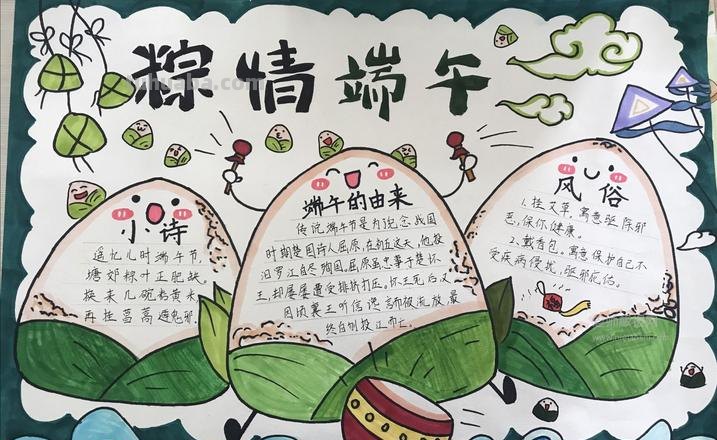 粽情端午
小诗
遥忆儿时端午节,
塘郊粽叶正肥缺.
换来几碗粉黄米,
再挂菖蒿避鬼邪.
端午的由来
传说端午节是为纪念战国
时期楚国诗人屈原,在初五这天,他投
汨罗江自尽殉国.屈原虽忠事于楚怀
王,却屡屡遭受排挤打压.怀王死后又
因顷襄王听信谗言而被流放,最
终自刎投江而亡.
风俗
1.挂艾草,寓意驱除邪
恶,保你健康.
2.戴香包,寓意保护自己不
受疾病侵扰,驱邪庇佑.